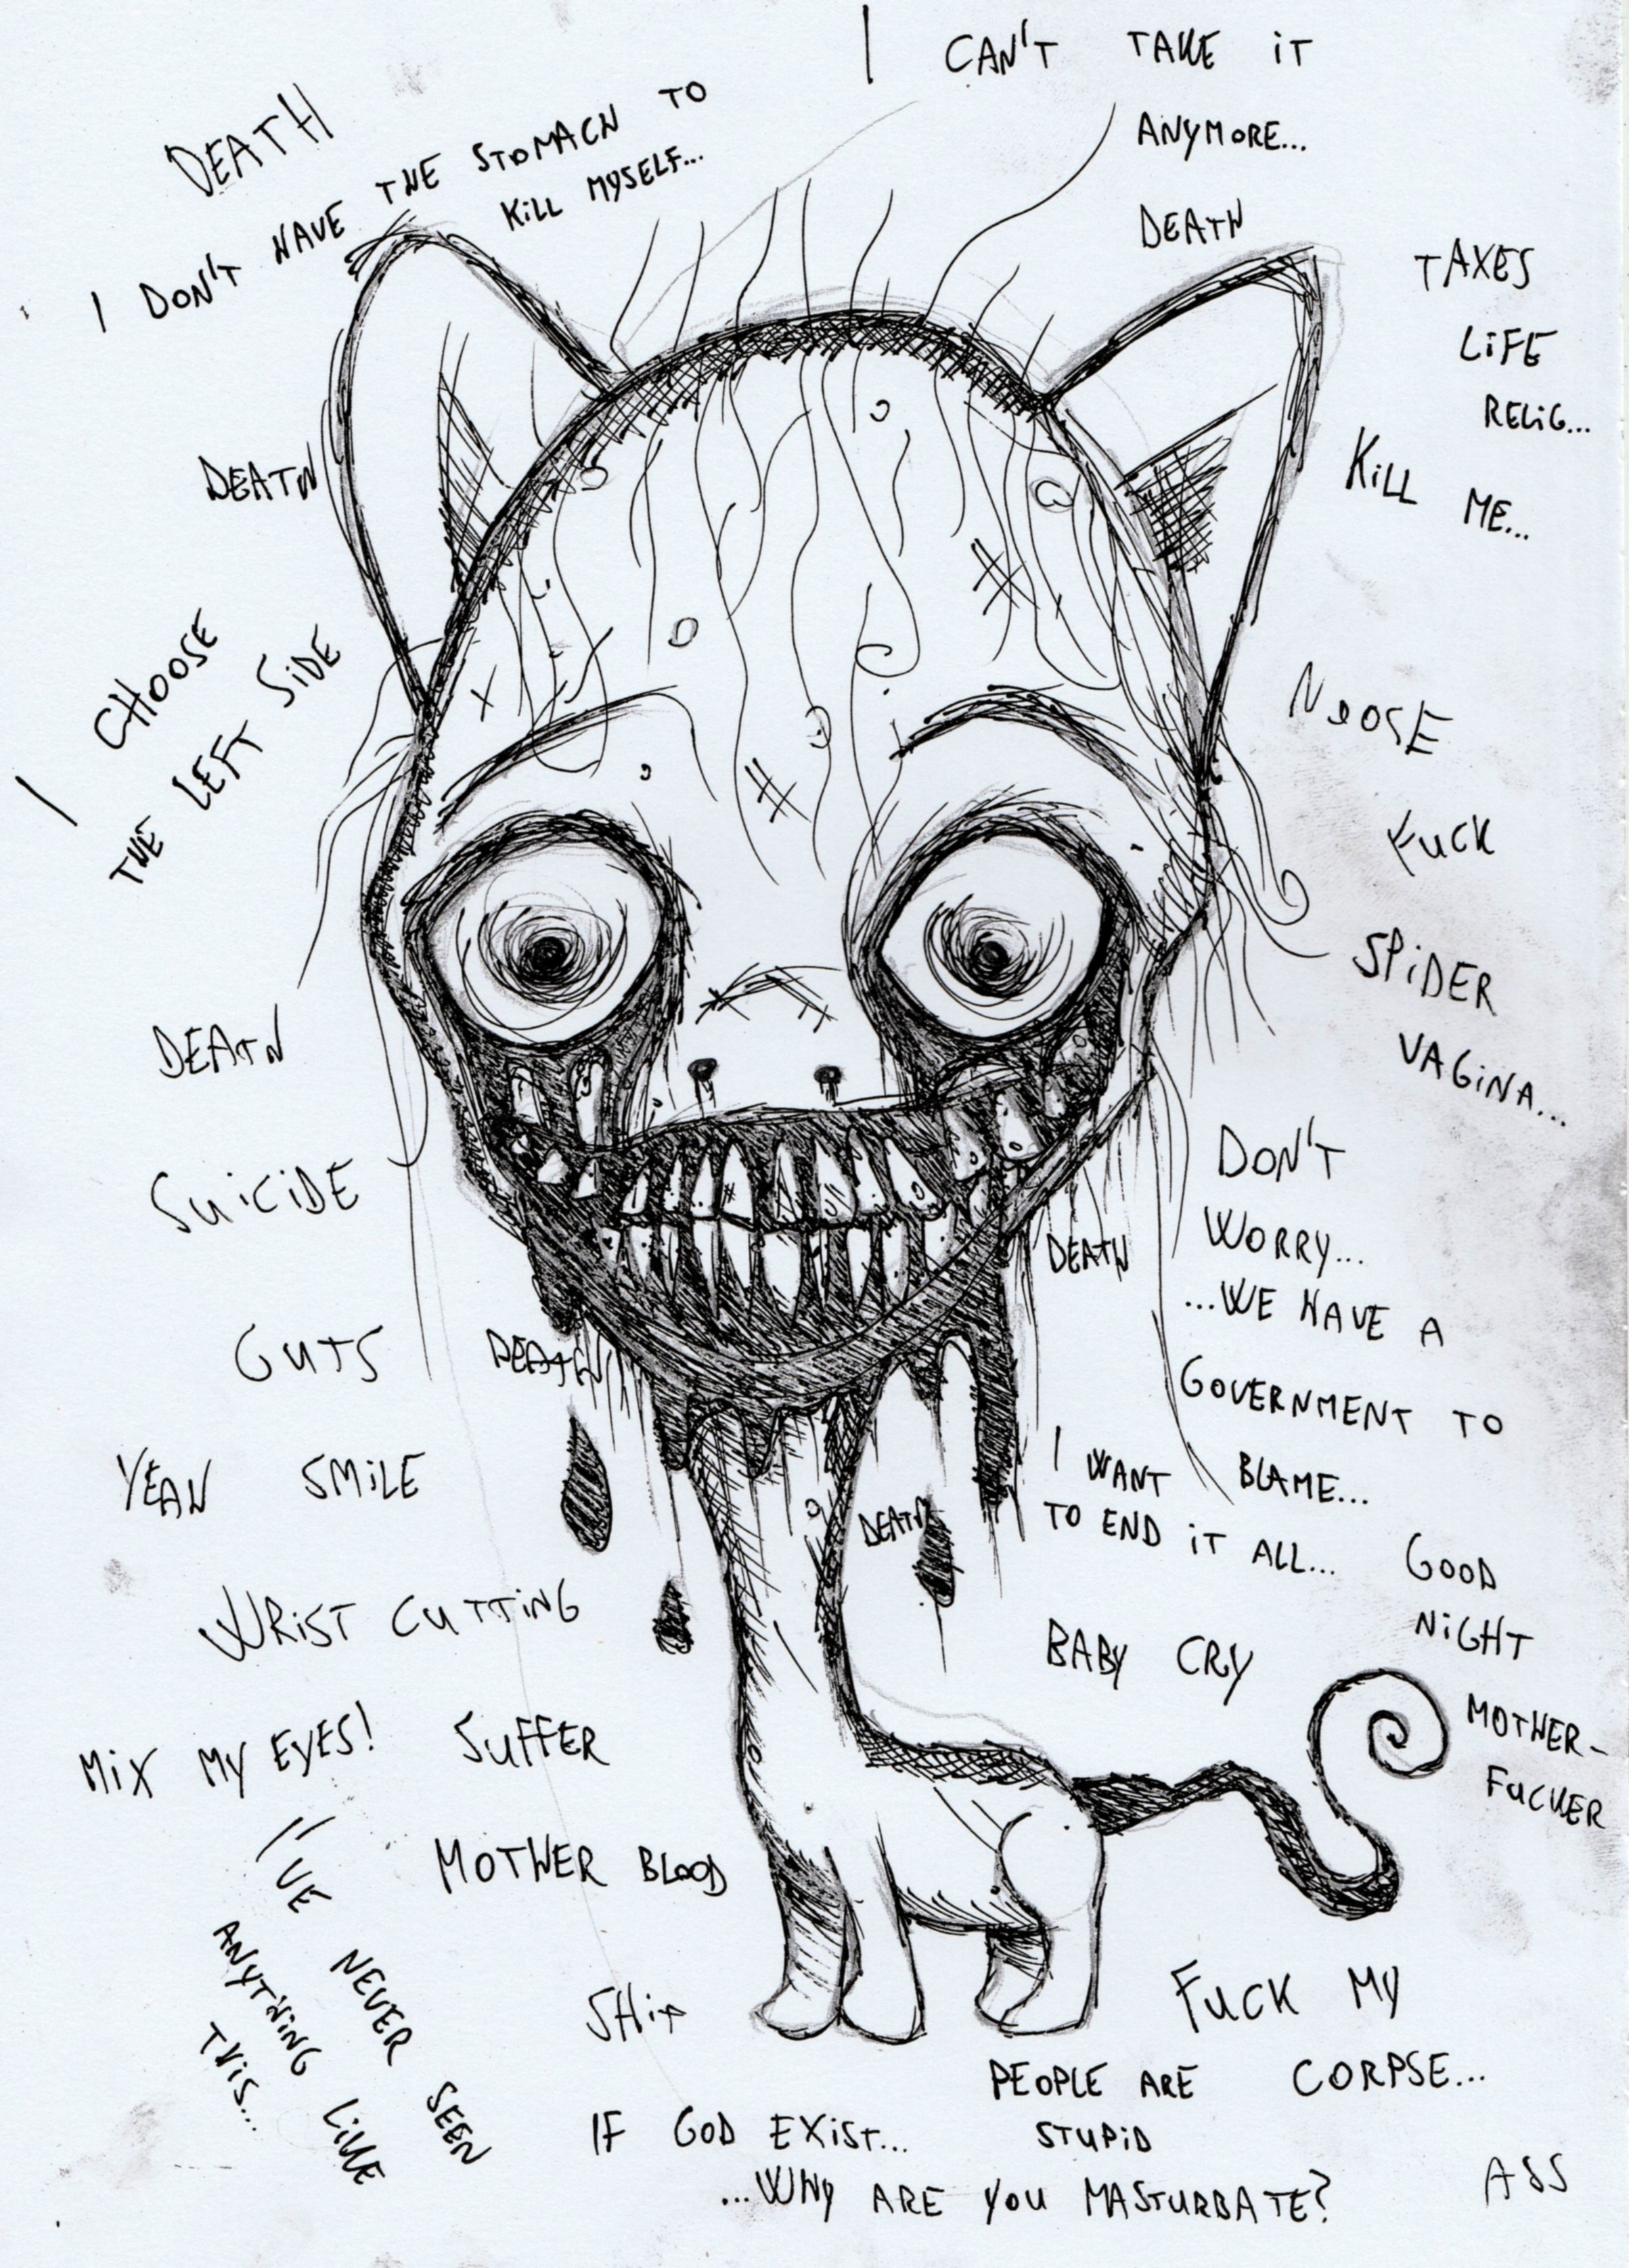 I CAN'T TAKE IT
ANYMORE...
DEATH
I DON'T HAVE THE STOMACH TO
KILL MYSELF...
DEATH
TAXES
LIFE
RELIG...
KILL ME...
DEATH
I CHOOSE
THE LEFT SIDE
NOOSE
FUCK
SPIDER
VAGINA...
DEATH
SUICIDE
DON'T
WORRY...
...WE HAVE A
GOVERNMENT TO
BLAME...
DEATH
GUTS
DEATH
YEAH SMILE
I WANT
TO END IT ALL...
DEATH
GOOD
NIGHT
MOTHER-
FUCKER
WRIST CUTTING
BABY CRY
MIX MY EYES!
SUFFER
MOTHER BLOOD
I'VE NEVER SEEN
ANYTHING LIKE
THIS...
SHIT
FUCK MY
CORPSE...
PEOPLE ARE
STUPID
IF GOD EXIST...
...WHY ARE YOU MASTURBATE?
ASS